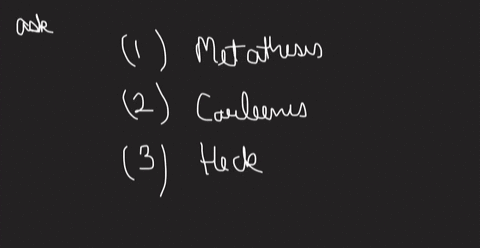 ask
(1) Metathesis
(2) Carbenes
(3) Heck